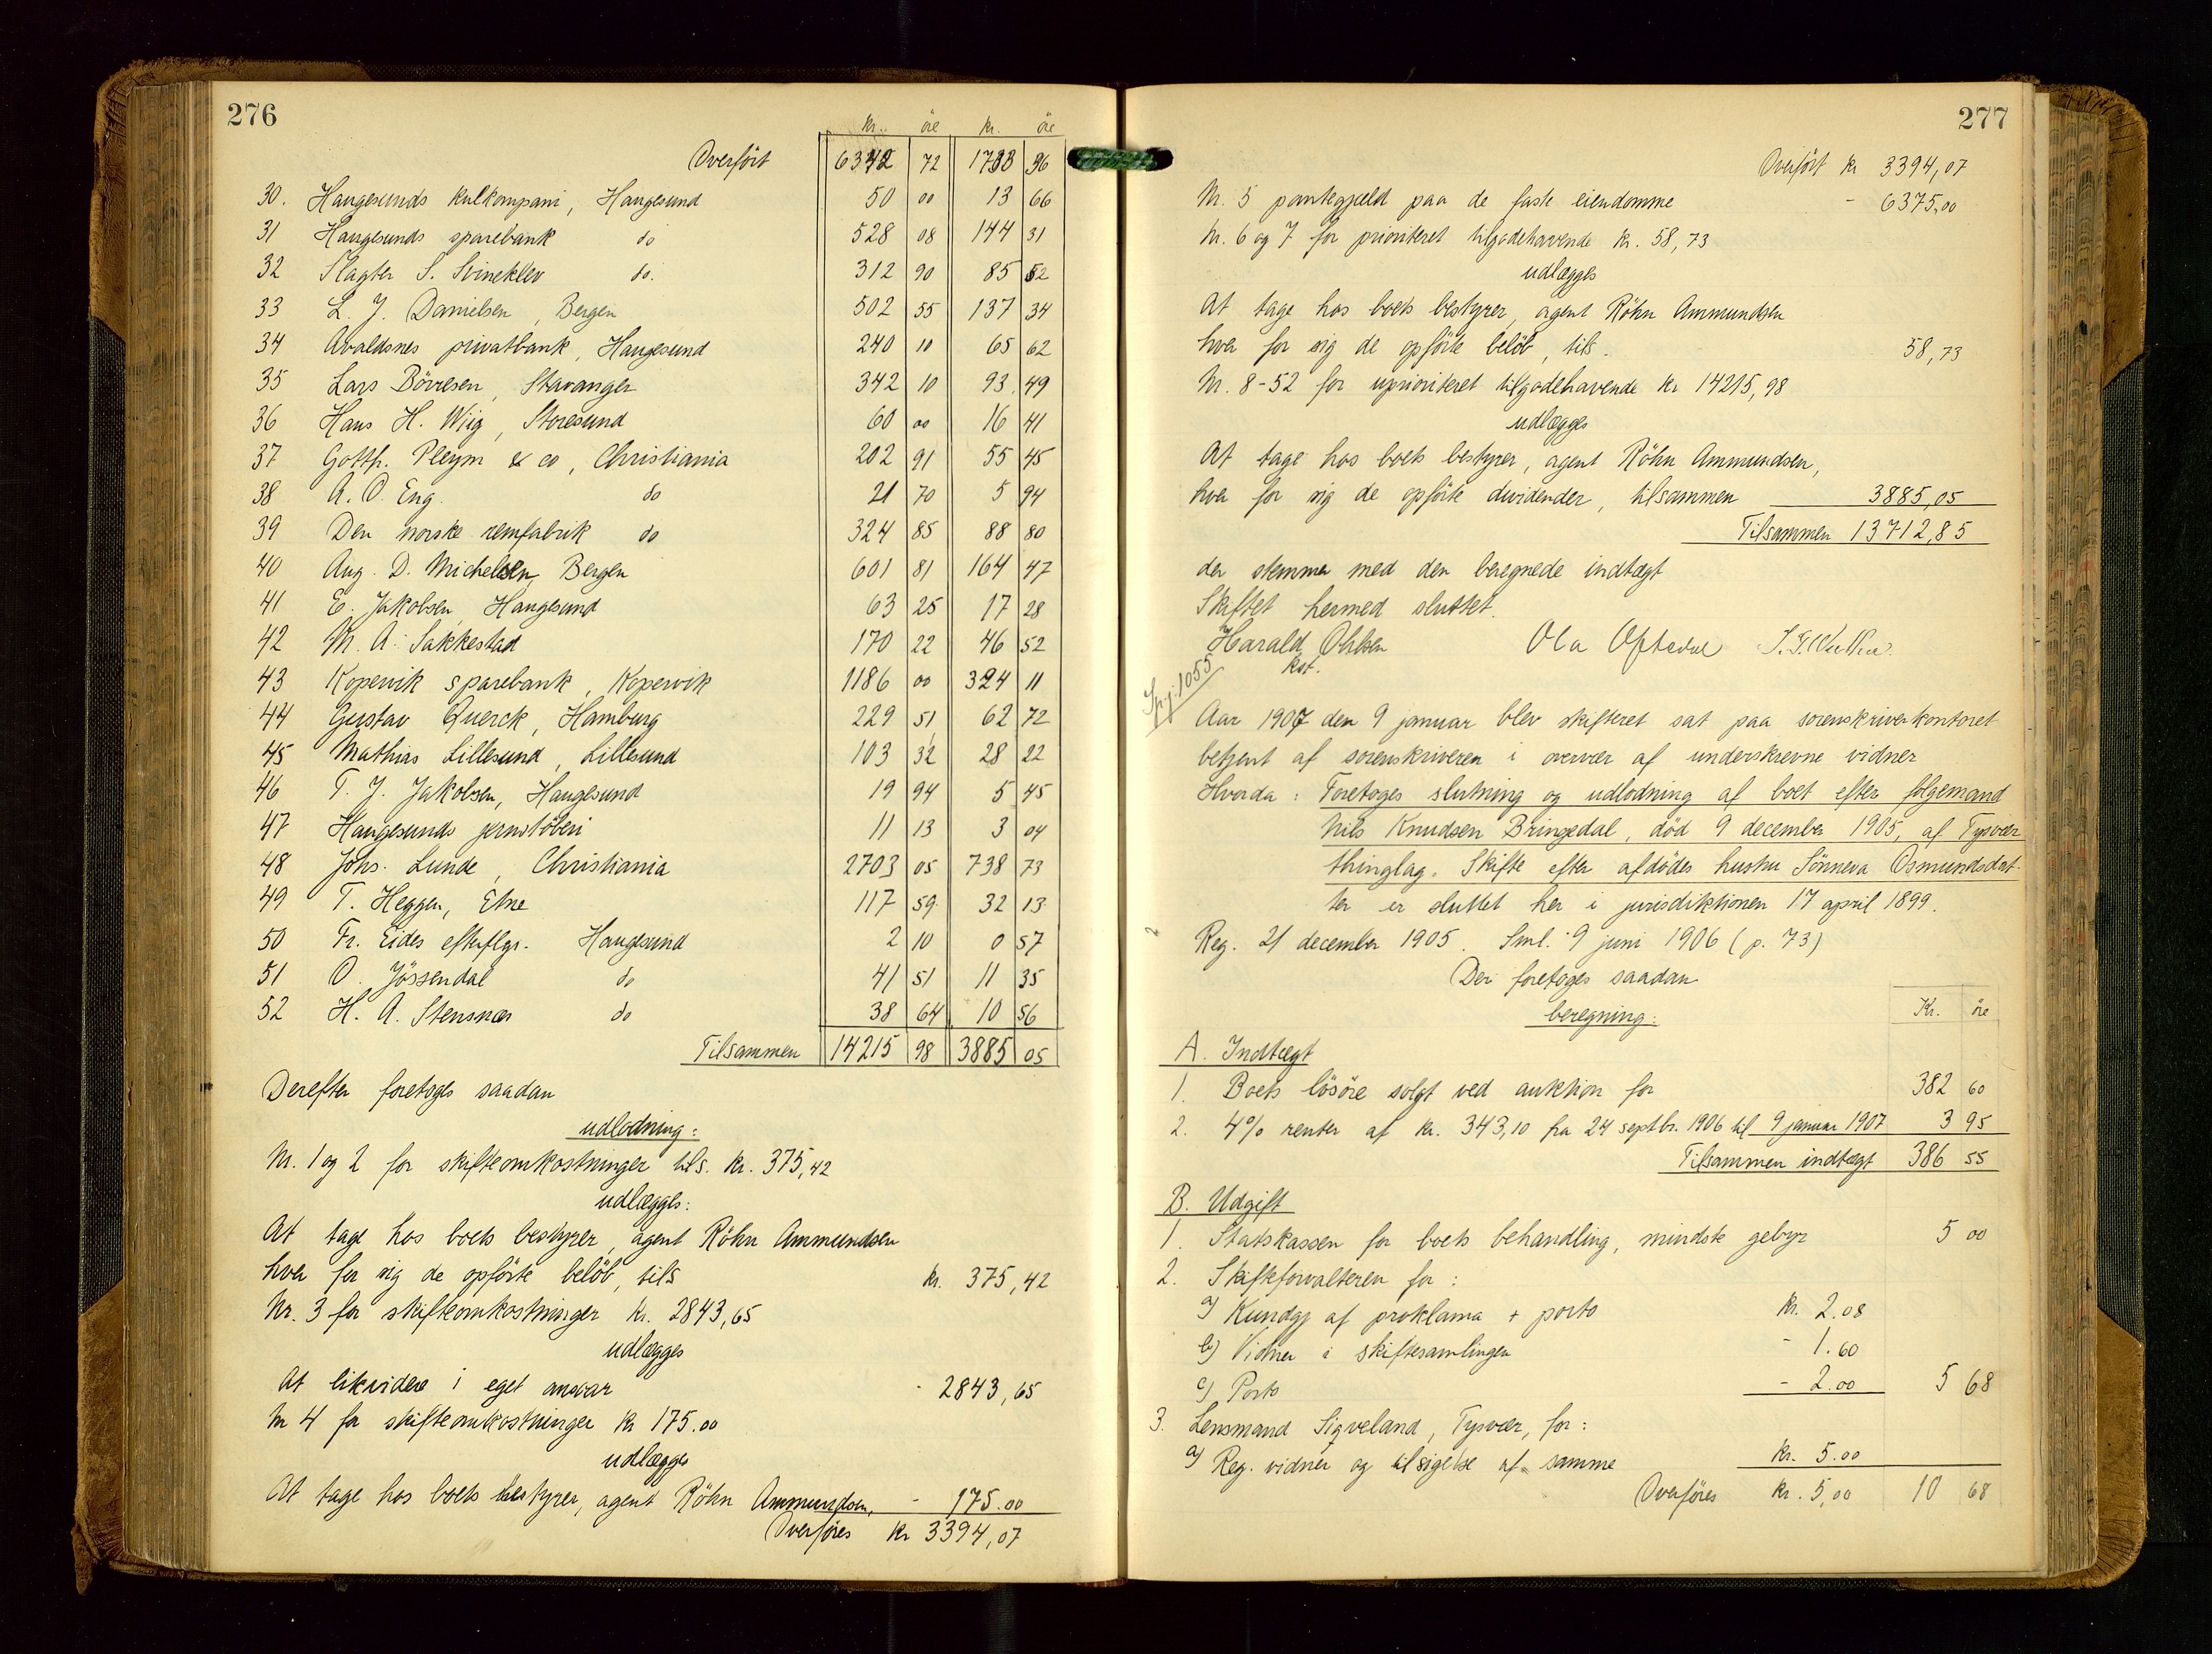 276
kr. øre kr. øre
Overført 6342 72 1733 36
30. Haugesunds kulkompani, Haugesund 50 00 13 66
31 Haugesunds sparebank do 528 08 144 31
32 Slagter S. Svineklev do. 312 90 85 52
33 L. J. Danielsen, Bergen 502 55 137 34
34 Avaldsnes privatbank, Haugesund 240 10 65 62
35 Lars Börresen, Stavanger 342 10 93 49
36 Hans H. Wiig, Storesund 60 00 16 41
37 Gottfr. Pleym & co, Christiania 202 91 55 45
38 A. O. Eng. do 21 70 5 94
39 Den norske remfabrik do 324 85 88 80
40 Aug. D. Michelsen, Bergen 601 81 164 47
41 E. Jakobsen, Haugesund 63 25 17 28
42 M. A. Sakkestad 170 22 46 52
43 Kopervik sparebank, Kopervik 1186 00 324 11
44 Gustav Querck, Hamburg 229 51 62 72
45 Mathias Lillesund, Lillesund 103 32 28 22
46 T. J. Jakobsen, Haugesund 19 94 5 45
47 Haugesunds jernstöberi 11 13 3 04
48 Johs. Lunde, Christiania 2703 05 738 73
49 T. Heggen, Etne 117 59 32 13
50 Fr. Eides efterflgr. Haugesund 2 10 0 57
51 O. Jössendal do 41 51 11 35
52 H. A. Stensnæs do 38 64 10 56
Tilsammen 14215 98 3885 05
Derefter foretoges saadan
udlodning:
Nr. 1 og 2 for skifteomkostninger tils. kr. 375,42
udlægges:
At tage hos boets bestyrer, agent Röhn Ammundsen
hver for sig de opførte beløb, tils kr. 375,42
Nr. 3 for skifteomkostninger kr. 2843,65
udlægges
At likvidere i eget ansvar - 2843,65
Nr 4 for skifteomkostninger kr 175.00
udlægges
At tage hos boets bestyrer, agent Röhn Ammundsen, - 175.00
Overføres kr 3394,07
277
Overført kr 3394,07
Nr. 5 pantegjæld paa de faste eiendomme - 6375,00
Nr. 6 og 7 for prioriteret tilgodehavende kr. 58,73
udlægges
At tage hos boets bestyrer, agent Röhn Ammundsen
hver for sig de opførte beløb, tils. 58,73
Nr. 8-52 for uprioriteret tilgodehavende kr 14215,98
udlægges
At tage hos boets bestyrer, agent Röhn Ammundsen,
hver for sig de opførte dividender, tilsammen 3885,05
Tilsammen 13712,85
der stemmer med den beregnede indtægt
Skiftet hermed sluttet.
Harald Ohlsen Ola Oftedal
kst.
Spj. 1055
Aar 1907 den 9 januar blev skifteret sat paa sorenskriverkontoret
betjent af sorenskriveren i overvær af underskrevne vidner
Hvorda: Foretoges slutning og udlodning af boet efter følgemand
Nils Knudsen Bringedal, död 9 december 1905, af Tysvær
thinglag. Skifte efter afdødes hustru Sönneva Osmundsdat-
ter er sluttet her i jurisdiktionen 17 april 1899.
Reg. 21 december 1905. Sml. 9 juni 1906 (p. 73)
Der foretoges saadan
beregning:
Kr. øre
A. Indtægt
1. Boets lösöre solgt ved auktion for 382 60
2. 4% renter af kr. 343,10 fra 24 septbr. 1906 til 9 januar 1907 3 95
Tilsammen indtægt 386 55
B. Udgift
1. Statskassen for boets behandling, mindste gebyr 5 00
2. Skifteforvalteren for:
a) Kundgj af proklama + porto kr. 2.08
b) Vidner i skiftesamlingen - 1.60
c) Porto - 2.00 5 68
3. Lensmand Sigveland, Tysvær, for:
a) Reg. vidner og tilsigelse af samme kr. 5.00
Overføres kr. 5,00 10 68